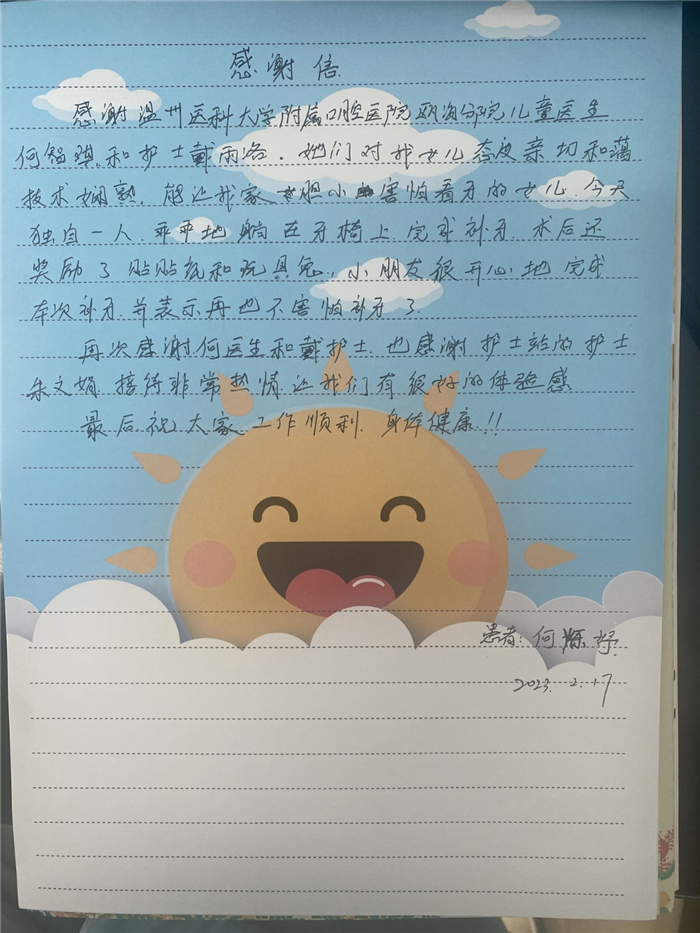 感谢信
感谢温州医科大学附属口腔医院瓯海分院儿童医生
何智琪和护士戴雨洛。她们对我女儿态度亲切和蔼
技术娴熟。能让我家胆小害怕看牙的女儿今天
独自一人.乖乖地躺在牙椅上完成补牙.术后还
奖励了贴贴纸和玩具兔.小朋友很开心地完成
本次补牙.并表示再也不害怕补牙了.
再次感谢何医生和戴护士.也感谢护士站的护士
朱文娟.接待非常热情让我们有很好的体验感
最后祝大家工作顺利.身体健康!!
患者:何 妤.
2023.2.17